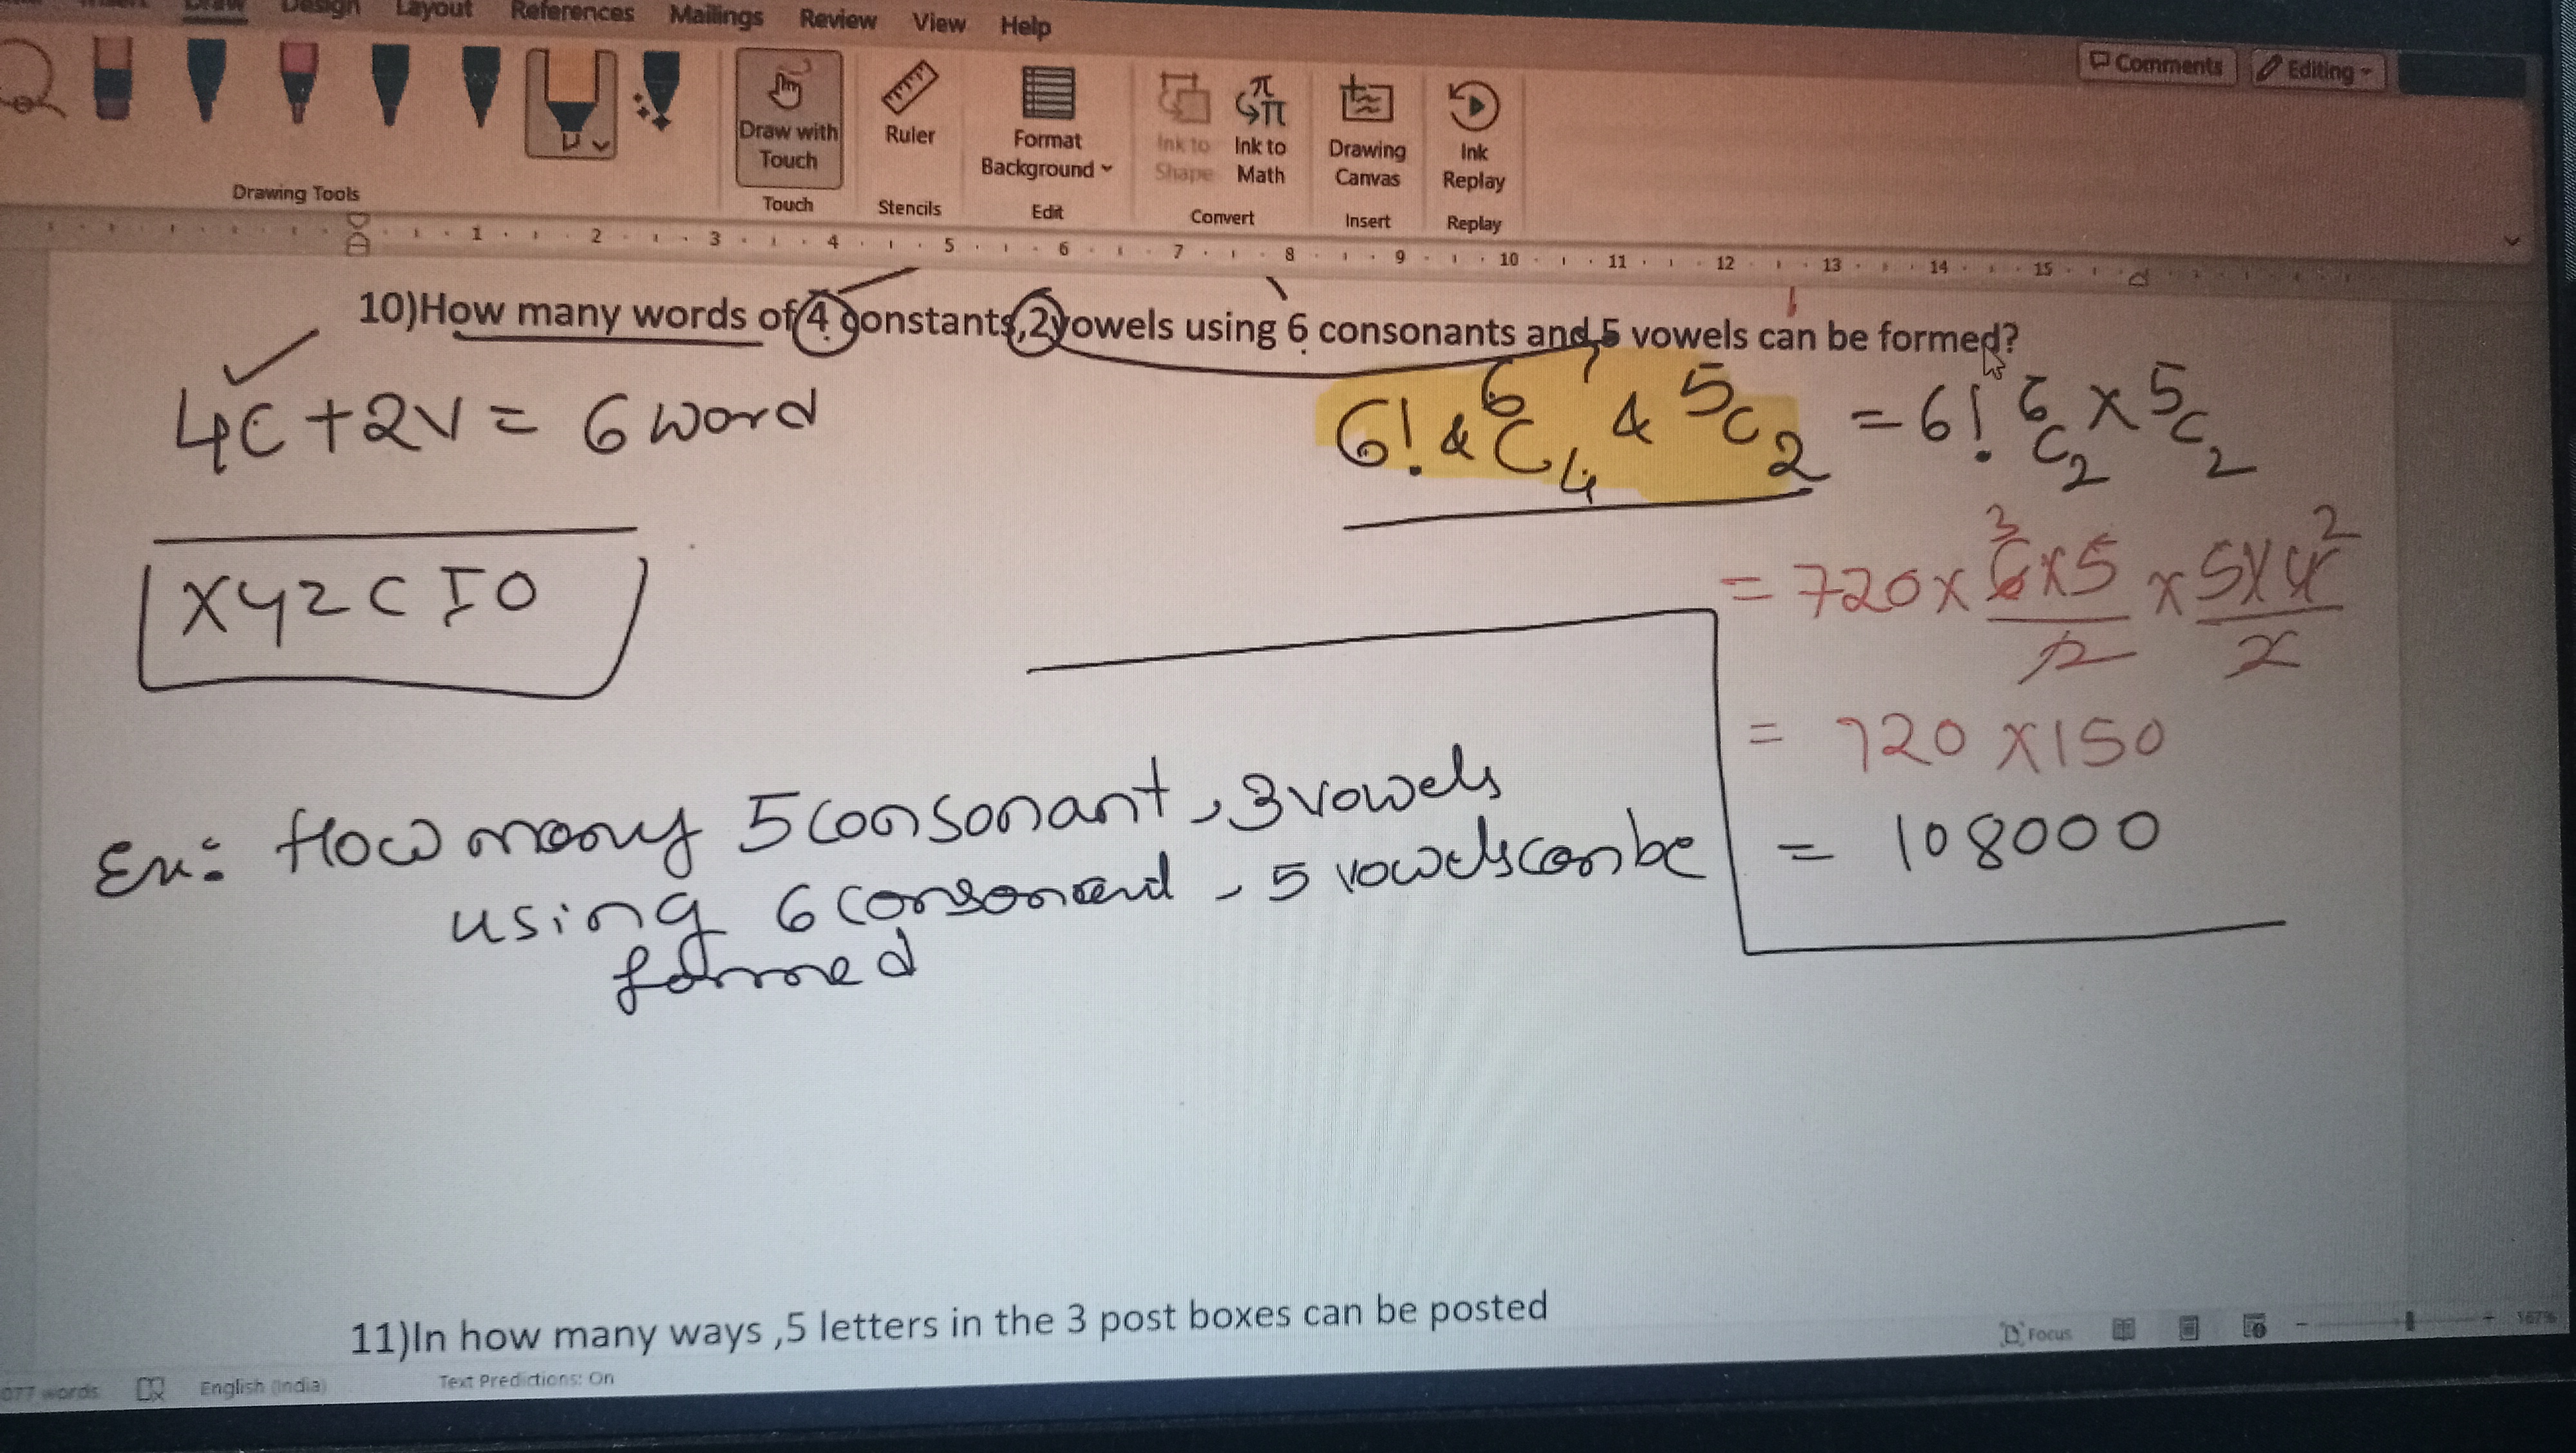 Draw Design Layout References Mailings Review View Help
Comments Editing
Draw with Touch
Ruler
Format Background
Ink to Shape
Ink to Math
Drawing Canvas
Ink Replay
Drawing Tools Touch Stencils Edit Convert Insert Replay
1 2 3 4 5 6 7 8 9 10 11 12 13 14 15
10)How many words of 4 constants,2vowels using 6 consonants and 5 vowels can be formed?
4C+2V = 6 word
6! & 6C4 & 5C2 = 6! 6C2 x 5C2
XYZCIO
= 720 x 6x5/2 x 5x4/2
3 2
= 720 x 150
= 108000
Ex: How many 5 consonant, 3 vowels
using 6 consonant, 5 vowels can be
formed
11)In how many ways ,5 letters in the 3 post boxes can be posted
077 words English (India) Text Predictions: On Focus 167%